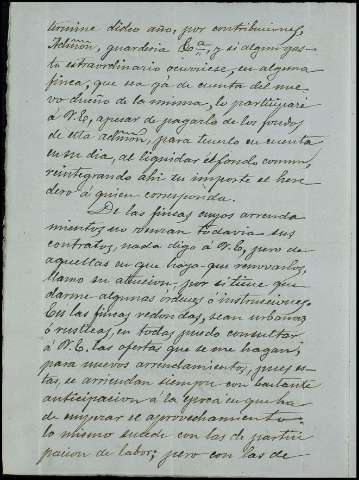 termine dicho año, por contribuciones,
Admón, guarderia &a, y si algun gas-
to extraordinario ocurriese, en alguna
finca, que sea yá de cuenta del nue-
vo dueño de la misma, lo participaré
á V.E, apesar de pagarlo de los fondos
de esta admón, para tenerlo en cuenta
en su dia, al liquidar el fondo comun,
reintegrando ahi tu importe el here-
dero á quien corresponda.
De las fincas cuyos arrenda
mientos no venzan todavia sus
contratos, nada digo á V.E, pero de
aquellas en que haya que renovarlos,
llamo su atencion, por si tiene que
darme algunas ordenes ó instrucciones.
En las fincas redondas, sean urbanas
ó rusticas, en todas puedo consultar
á V.E, las ofertas que se me hagan,
para nuevos arrendamientos, pues es-
tas, se arriendan siempre con bastante
anticipacion á la época en que ha
de empezar el aprovechamiento.
lo mismo sucede con las de partici
pacion de labor; pero con las de